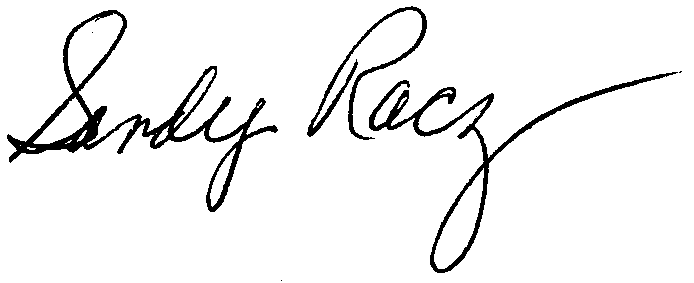 Sandy Racz